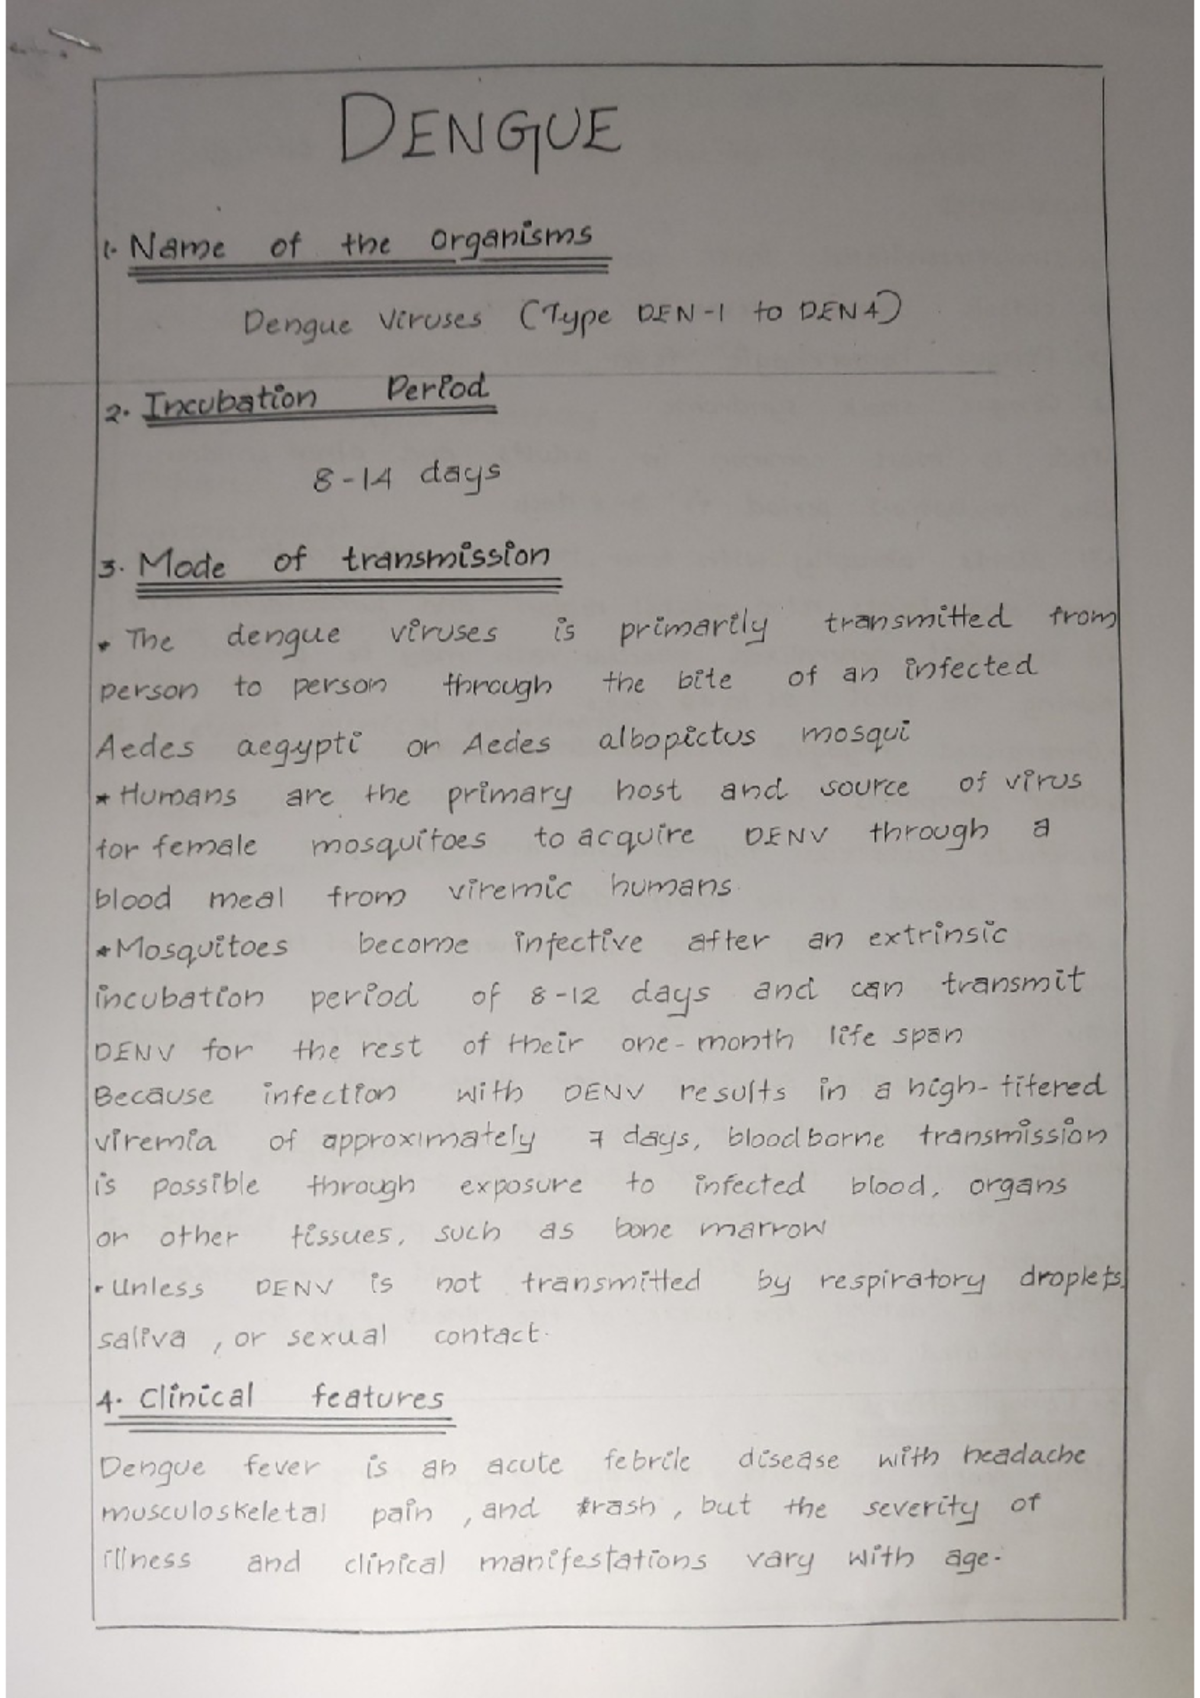 DENGUE
1. Name of the organisms
Dengue Viruses (Type DEN-1 to DEN4)
2. Incubation Period
8-14 days
3. Mode of transmission
* The dengue viruses is primarily transmitted from
person to person through the bite of an infected
Aedes aegypti or Aedes albopictus mosqui
* Humans are the primary host and source of virus
for female mosquitoes to acquire DENV through a
blood meal from viremic humans.
* Mosquitoes become infective after an extrinsic
incubation period of 8-12 days and can transmit
DENV for the rest of their one-month life span
Because infection with DENV results in a high-titered
viremia of approximately 7 days, bloodborne transmission
is possible through exposure to infected blood, organs
or other tissues, such as bone marrow
• Unless DENV is not transmitted by respiratory droplets,
saliva, or sexual contact.
4. Clinical features
Dengue fever is an acute febrile disease with headache
musculoskeletal pain, and rash, but the severity of
illness and clinical manifestations vary with age.